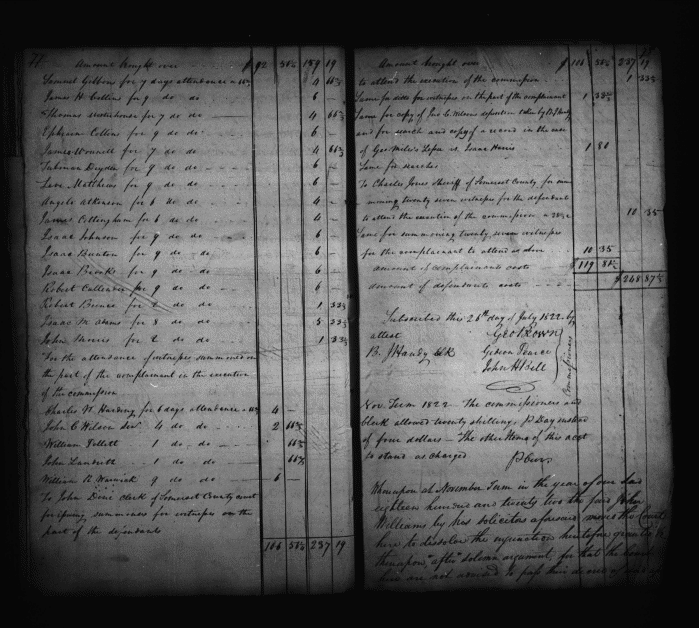 Amount brought over $ 92 38½ 159 19
Samuel Gibbons for 7 days attendance a 66⅔ 4 66⅔
James H Collins for 9 do do 6 —
Thomas for 7 do do 4 66⅔
Ephraim Collins for 9 do do 6 —
James Wonnell for 7 do do 4 66⅔
Tubman Dryden for 9 do do 6 —
Matthews for 9 do do 6 —
Angelo Atkinson for 6 do do 4 —
James Cottingham for 6 do do 4 —
Isaac Johnson for 9 do do 6 —
Isaac Bunton for 9 do do 6 —
Isaac Brooks for 9 do do 6 —
Robert Callender for 9 do do 6 —
Robert for 2 do do 1 33⅓
Isaac W Adams for 8 do do 5 33⅓
John for 2 do do 1 33⅓
For the attendance of witnesses summoned on
the part of the complainant in the execution
of the commission
Charles W. Harding for 6 days attendance a 66⅔ 4 —
John C Wilson Senr. 4 do do 2 66⅔
William 1 do do 66⅔
John 1 do do 66⅔
William R Warwick 9 do do 6 —
To John Done clerk of Somerset County court
for issuing summonses for witnesses on the
part of the defendants
106 237 19
Amount brought over $ 106 38½ 237 19
to attend the execution of the commission 1 33
Same for ditto for witnesses on the part of the complainant 1
Same for copy of Jno C. Wilsons deposition taken by
and for search and copy of a record in the case
of Geo. Miles's vs Isaac Harris 1 81
Same for searches
To Charles Jones Sheriff of Somerset County for sum
moning twenty seven witnesses for the defendant
to attend the execution of the commission 10 35
Same for summoning twenty seven witnesses
for the complainant to attend as above 10 35
amount of complainants costs $ 119
amount of defendants costs $ 248.87½
Subscribed this 26th day of July 1822 by
attest Geo Brown
B. J Handy Clk Gideon Pearce
John H Bell
Commissioners
Nov. Term 1822 — The commissioners and
clerk allowed twenty shillings P Day instead
of four dollars — The other Items of this acct
to stand as charged P Cur.
Whereupon at November Term in the year of our Lord
eighteen hundred and twenty two the said John
Williams by his solicitors aforesaid moves the Court
here to dissolve the injunction heretofore granted &
thereupon after solemn argument, for that the Court
here are not advised to pass their decree of and